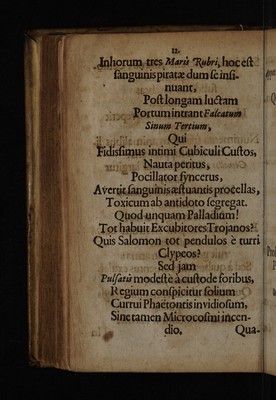 12.
Inhorum tres Maris Rubri, hoc est
sanguinis piratæ dum se insi-
nuant,
Post longam luctam
Portum intrant Falcatum
Sinum Tertium,
Qui
Fidissimus intimi Cubiculi Custos,
Nauta peritus,
Pocillator syncerus,
Avertit sanguinis æstuantis procellas,
Toxicum ab antidoto segregat.
Quod unquam Palladium!
Tot habuit Excubitores Trojanos?
Quis Salomon tot pendulos è turri
Clypeos?
Sed jam
Pulsatis modestè à custode foribus,
Regium conspicitur solium
Currui Phaëtontis invidiosum,
Sine tamen Microcosmi incen-
dio. Qua-